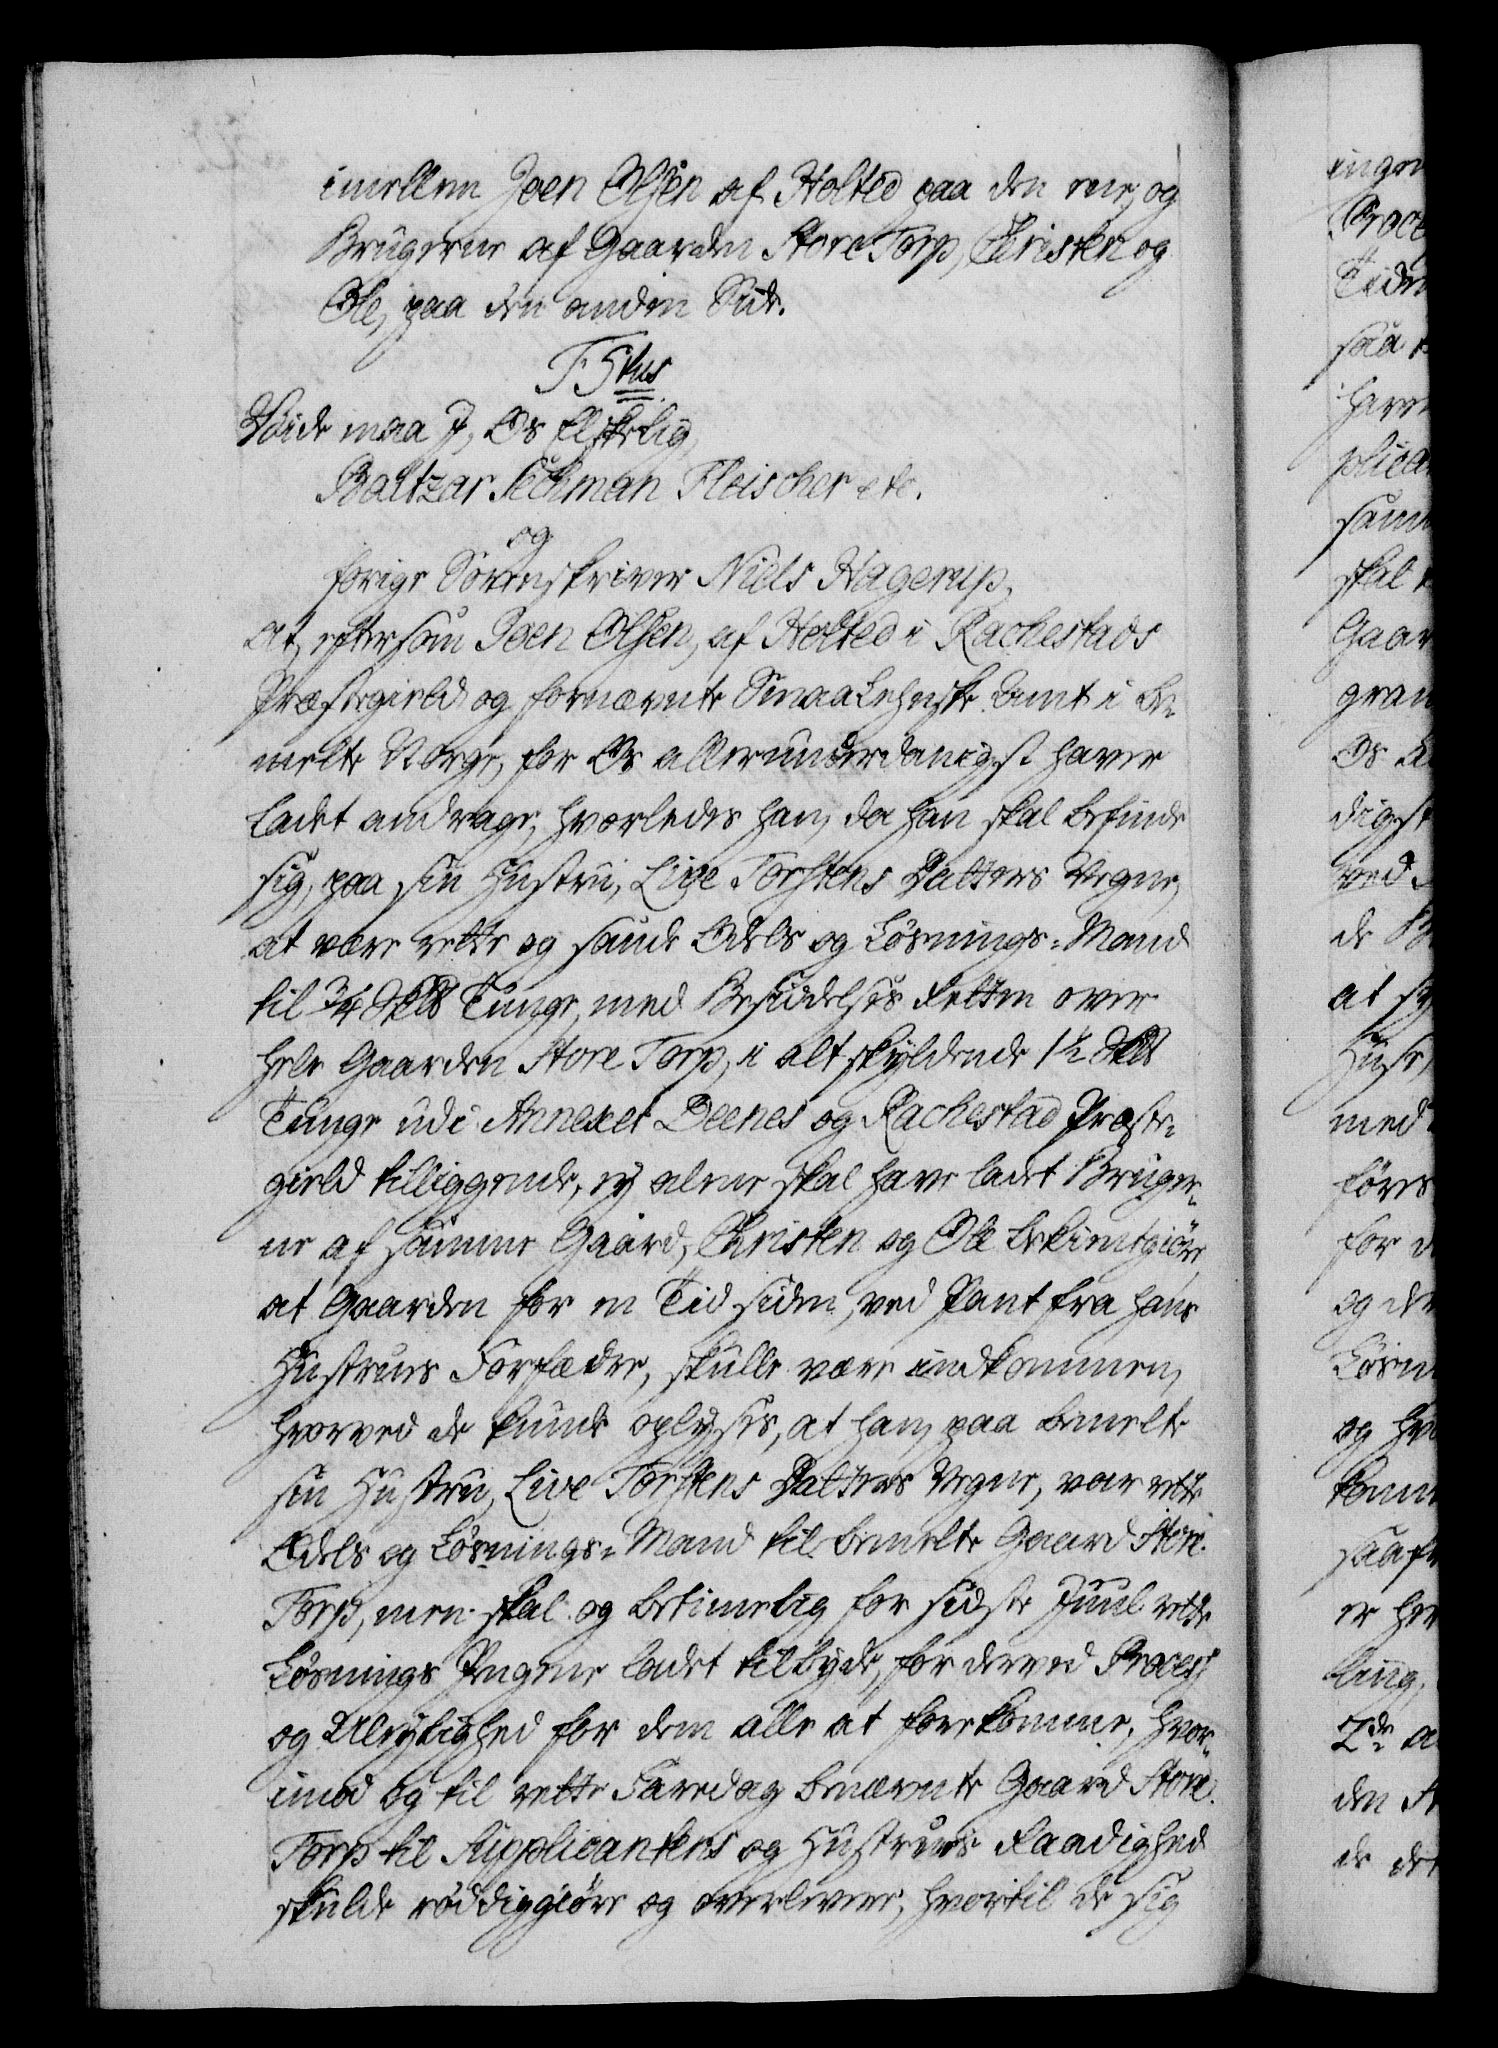 imellem Joen Olsen af Holted paa den ene, og
Brugerne af Gaarden Store Torp, Christen og
Ole, paa den anden Side.
F 5tus
Viide maa I, Os Elskelig,
Baltzar Sechman Fleischer etc.
og
forige Sorenskriver Niels Hagerup,
At, eftersom Joen Olsen, af Holted i Rachestads
Præstegield og fornævnte Smaalehnske Amt i be-
melte Norge, for Os allerunderdanigst haver
ladet andrage, hvorledes han, da han skal befinde
sig, paa sin Hustru, Live Torstens Datters Vegne,
at være rette og sande Odels og Løsnings-Mand
til 3/4 Skld Tunge, med Besiddelses Retten over
hele Gaarden Store Torp, i alt skyldende 1½ Skld
Tunge udi Annexet Deenes og Rachestad Præste-
gield tilliggende, ej alene skal have ladet Bruger-
ne af samme Gaard, Christen og Ole bekientgiøre,
at Gaarden for en Tid siden, ved Pant fra hans
Hustrues Forfædre, skulle være indkommen,
hvorved de kunde oplyses, at han, paa bemelte
sin Hustru, Live Torstens Datters Vegne, var rette
Odels og Løsnings-Mand til bemelte Gaard Store
Torp, men skal og betimelig for sidste Juul rette
Løsnings Pengene ladet tilbyde, for derved Process
og Vlejlighed for dem alle at forekomme, hvor-
imod og til rette Faredag benævnte Gaard Store
Torp til Supplicantens og Hustrues Raadighed
skulde røddiggiøre og overlevere, hvortil de sig
ingen
Proce
Tiden
saa
have
plican
samm
skal
Gaar
gran
Os
digst
ved
de
at
Huse,
med
føres
for
og den
Løsn
og
komm
saa
er
ling,
2de a
den
de det